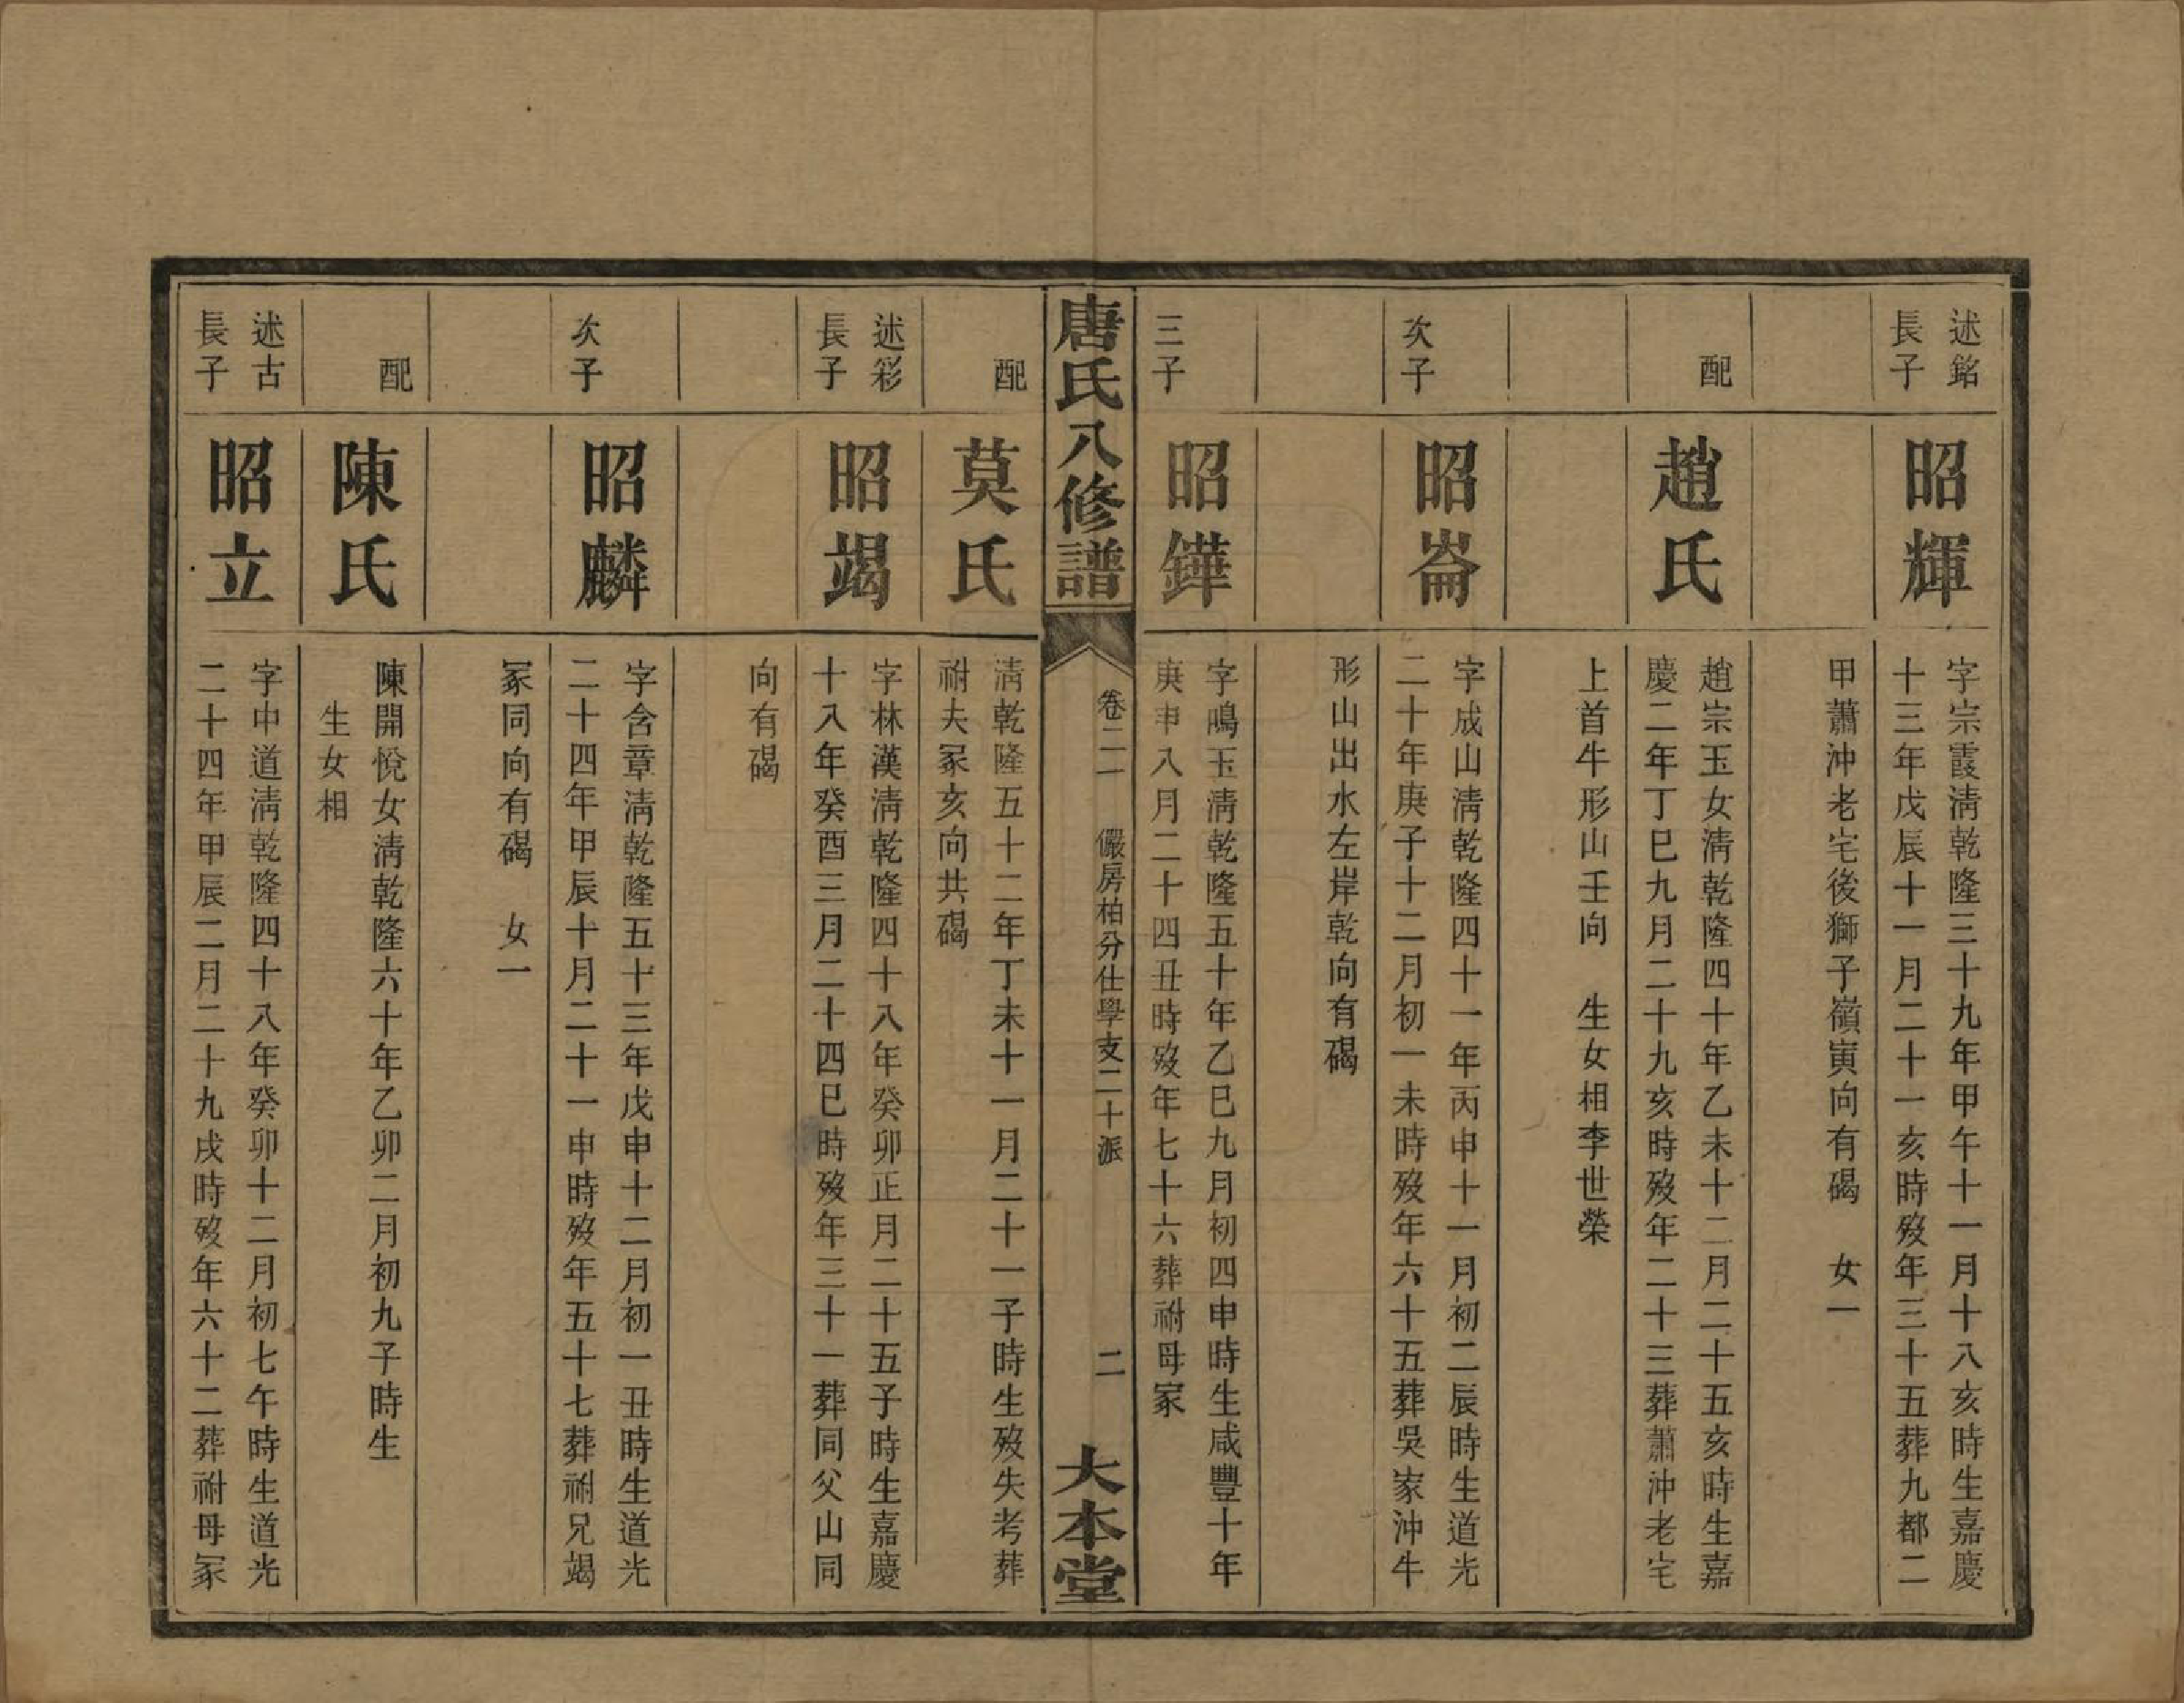 述銘
長子
昭輝
字宗霞淸乾隆三十九年甲午十一月十八亥時生嘉慶
十三年戊辰十一月二十一亥時歿年三十五葬九都二
甲蕭沖老宅後獅子嶺寅向有碣　女一
配
趙氏
趙宗玉女淸乾隆四十年乙未十二月二十五亥時生嘉
慶二年丁巳九月二十九亥時歿年二十三葬蕭沖老宅
上首牛形山壬向　生女相李世榮
次子
昭崙
字成山淸乾隆四十一年丙申十一月初二辰時生道光
二十年庚子十二月初一未時歿年六十五葬吳家沖牛
形山出水左岸乾向有碣
三子
昭鏵
字鳴玉淸乾隆五十年乙巳九月初四申時生咸豐十年
庚申八月二十四丑時歿年七十六葬祔母冢
唐氏八修譜
卷二一　儼房柏分仕學支二十派
二
大本堂
配
莫氏
淸乾隆五十二年丁未十一月二十一子時生歿失考葬
祔夫冢亥向共碣
述彩
長子
昭竭
字林漢淸乾隆四十八年癸卯正月二十五子時生嘉慶
十八年癸酉三月二十四巳時歿年三十一葬同父山同
向有碣
次子
昭麟
字含章淸乾隆五十三年戊申十二月初一丑時生道光
二十四年甲辰十月二十一申時歿年五十七葬祔兄竭
冢同向有碣　女一
配
陳氏
陳開悅女淸乾隆六十年乙卯二月初九子時生
生女相
述古
長子
昭立
字中道淸乾隆四十八年癸卯十二月初七午時生道光
二十四年甲辰二月二十九戌時歿年六十二葬祔母冢